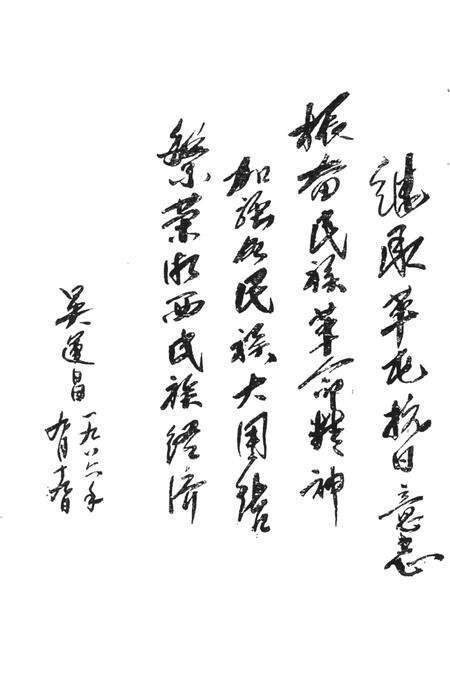 继承革屯抗日意志
振奋民族革命精神
加强各民族大团结
繁荣湘西民族经济
吴道昌
一九八六年
九月十